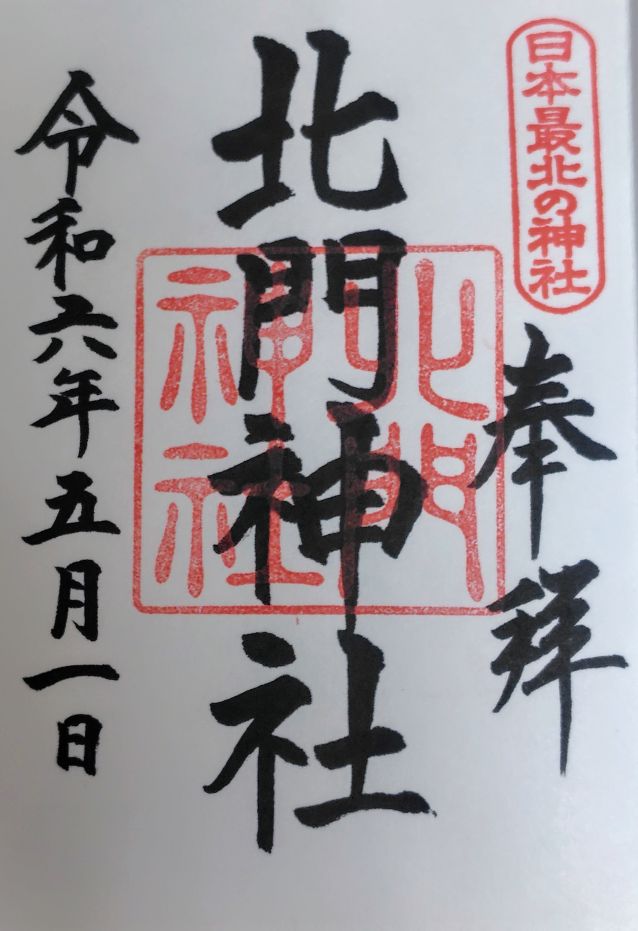 日本最北の神社
奉拝
北門神社
北門
神社
令和六年五月一日